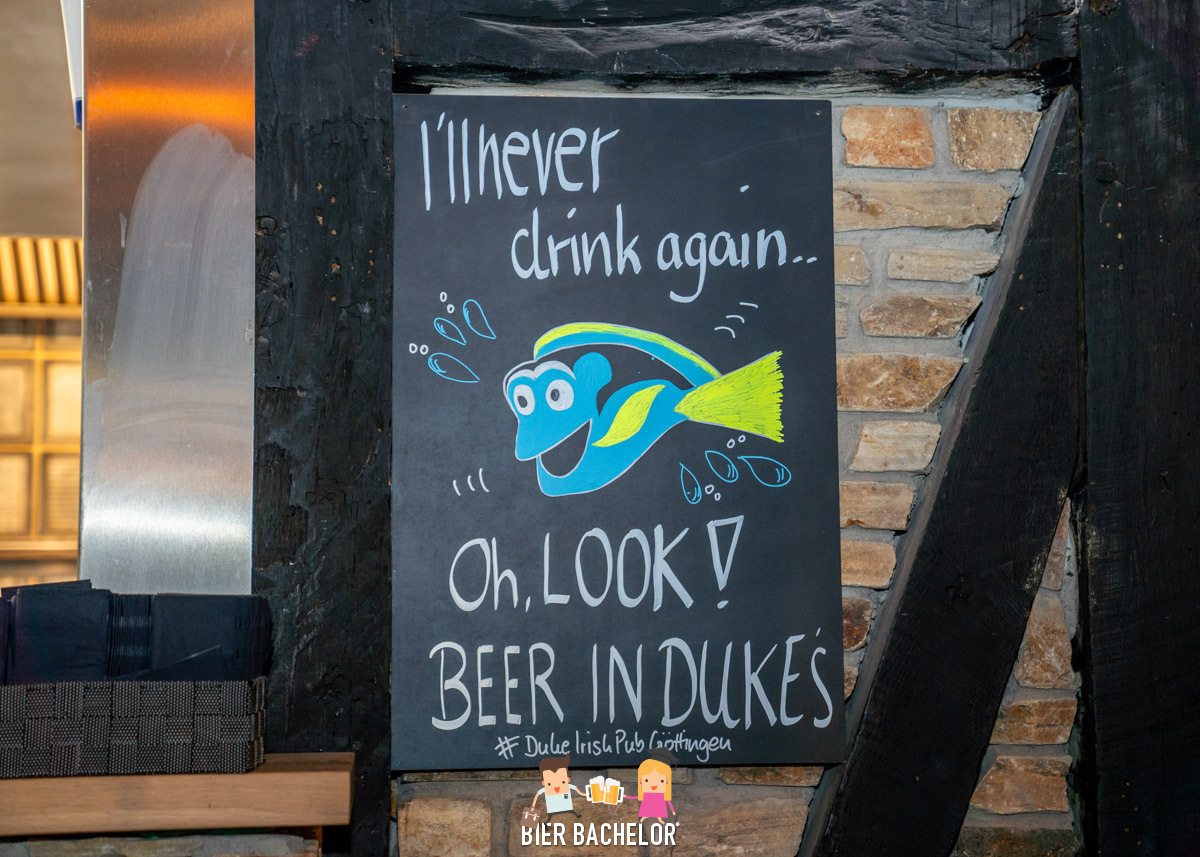 I'll never
drink again..
Oh, LOOK!
BEER IN DUKE'S
# Duke Irish Pub Göttingen
BIER BACHELOR